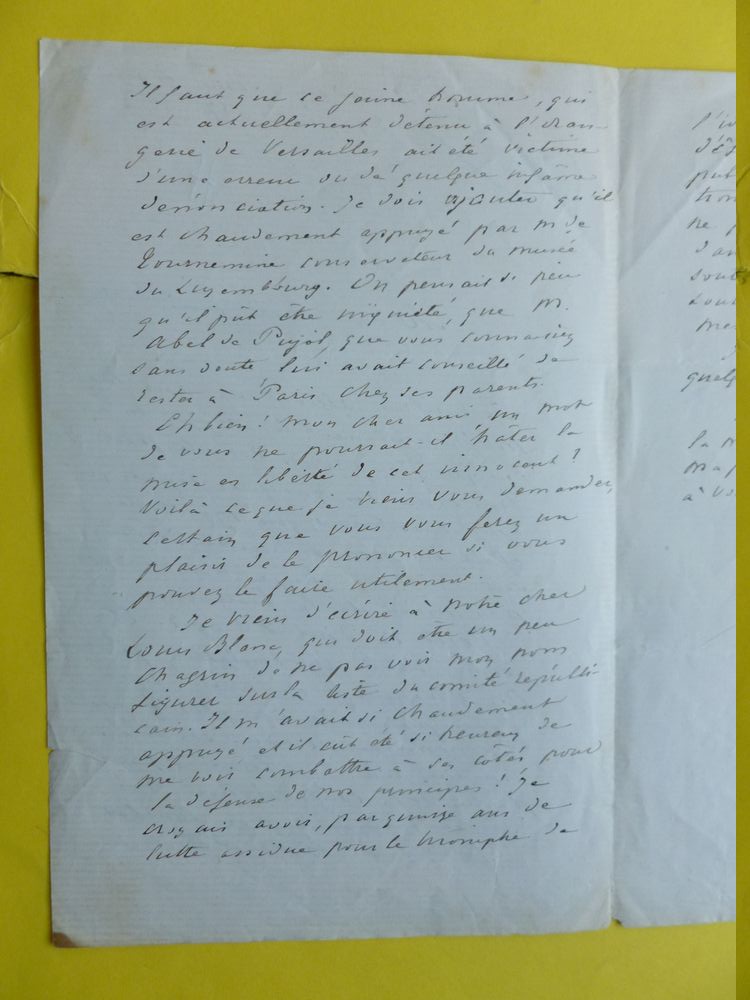 Il faut que ce jeune homme, qui
est actuellement détenu à l'oran-
gerie de Versailles ait été victime
d'une erreur ou de quelque infâme
dénonciation. Je dois ajouter qu'il
est chaudement appuyé par M. de
Tournemine conservateur du musée
du Luxembourg. On pensait si peu
qu'il pût être inquiété, que M.
Abel de Pujol, que vous connaissez
sans doute lui avait conseillé de
rester à Paris chez ses parents.
Eh bien! mon cher ami un mot
de vous ne pourrait-il hâter la
mise en liberté de cet innocent?
Voilà ce que je viens vous demander,
certain que vous vous ferez un
plaisir de le prononcer si vous
pouvez le faire utilement.
Je viens d'écrire à notre cher
Louis Blanc, qui doit être un peu
chagrin de ne pas voir mon nom
figurer sur la liste du comité républi-
cain. Il m'avait si chaudement
appuyé et il eût été si heureux de
me voir combattre à ses côtés pour
la défense de nos principes! Je
croyais avoir, par quinze ans de
lutte assidue pour le triomphe de
put
ne p
quelq
la
à vo